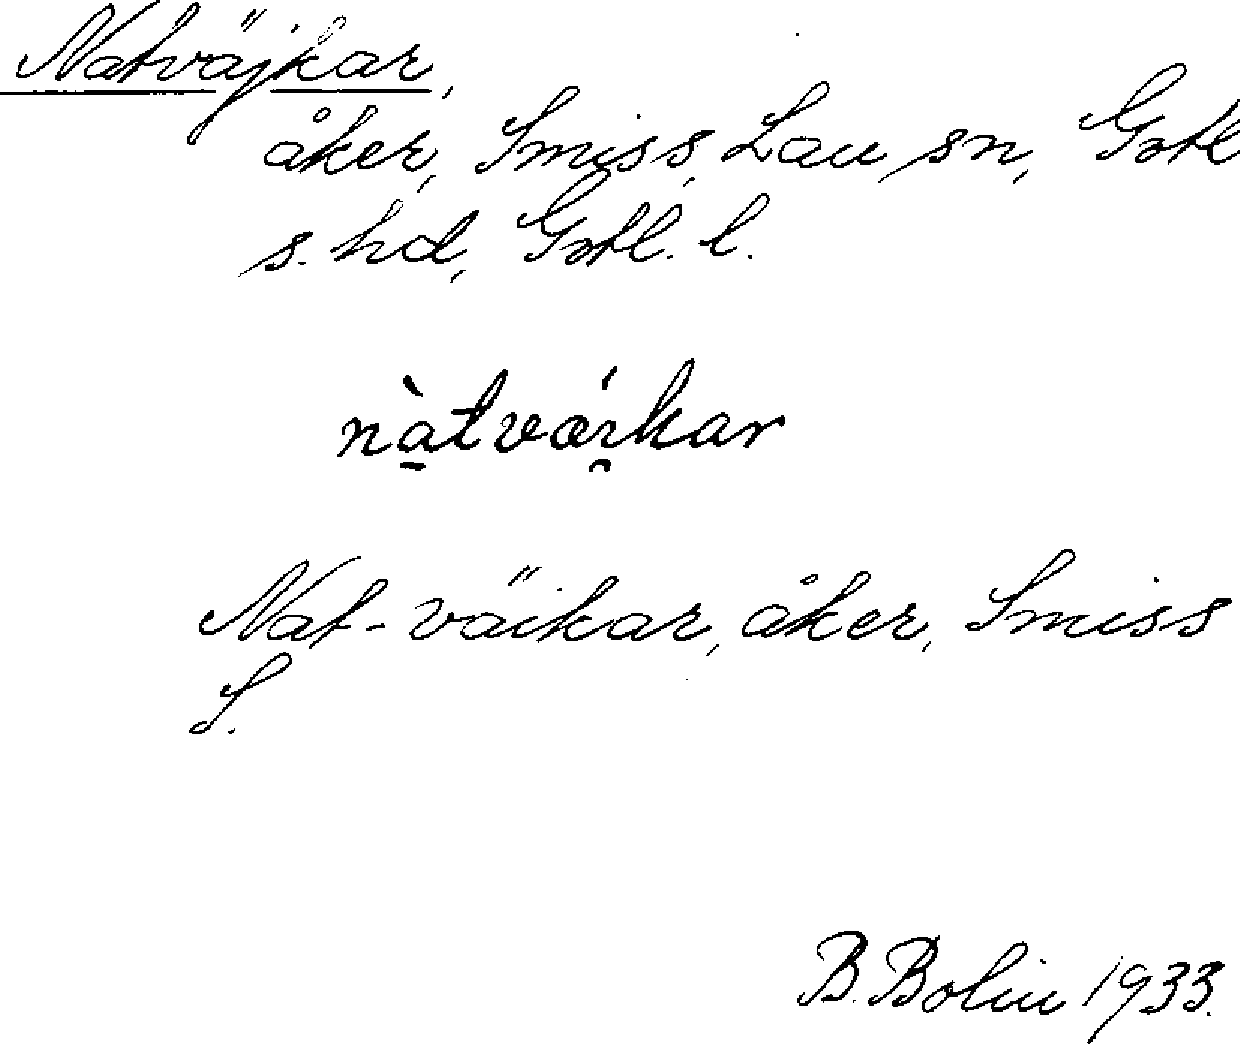 Natväjkar,
åker, Smiss, Lau sn, Gotl
s. hd, Gotl. l.
nàtvǽi̯kar
Nat-väikar, åker, Smiss
S.
B. Bolin 1933.